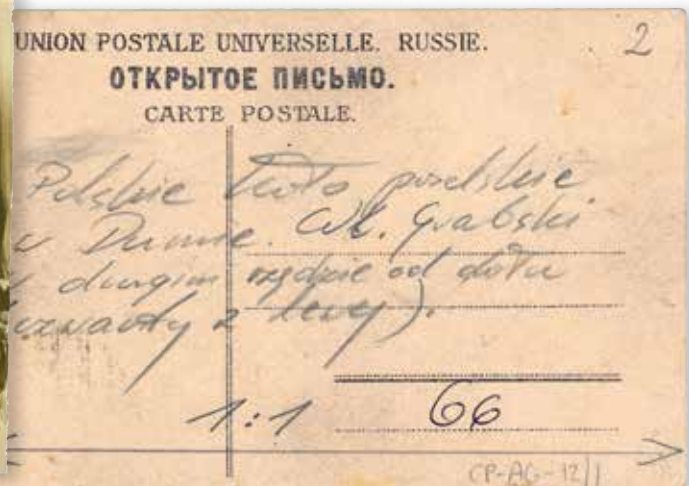 UNION POSTALE UNIVERSELLE. RUSSIE.
2
ОТКРЫТОЕ ПИСЬМО.
CARTE POSTALE.
Polskie koło poselskie
w Dumie. Wł. Grabski
w drugim rzędzie od dołu
czwarty z lewej).
1:1
66
CP-AG-12/1